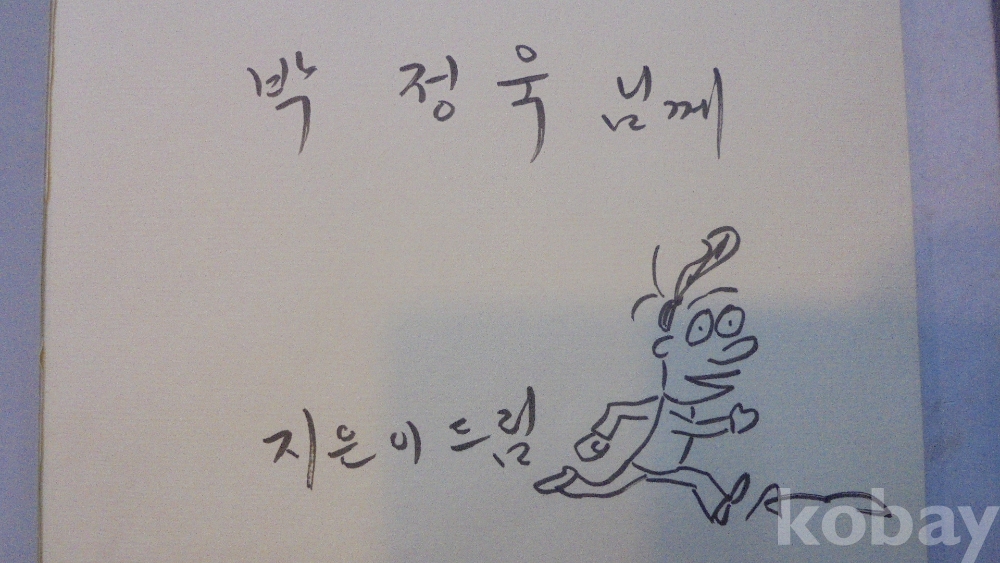 박 정 욱 님께
지은이 드림
kobay